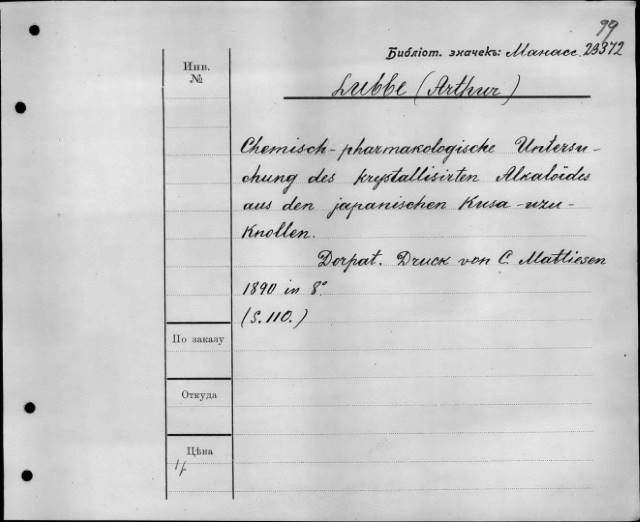 99
Библіот. значекъ: Манасс. 23372
Инв.
№
Lubbe (Arthur)
Chemisch-pharmakologische Untersu-
chung des krystallisirten Alkaloides
aus den japanischen Kusa-uzu-
knollen.
Dorpat. Druck von C. Mattiesen
1890 in 8°
(S. 110.)
По заказу
Откуда
Цѣна